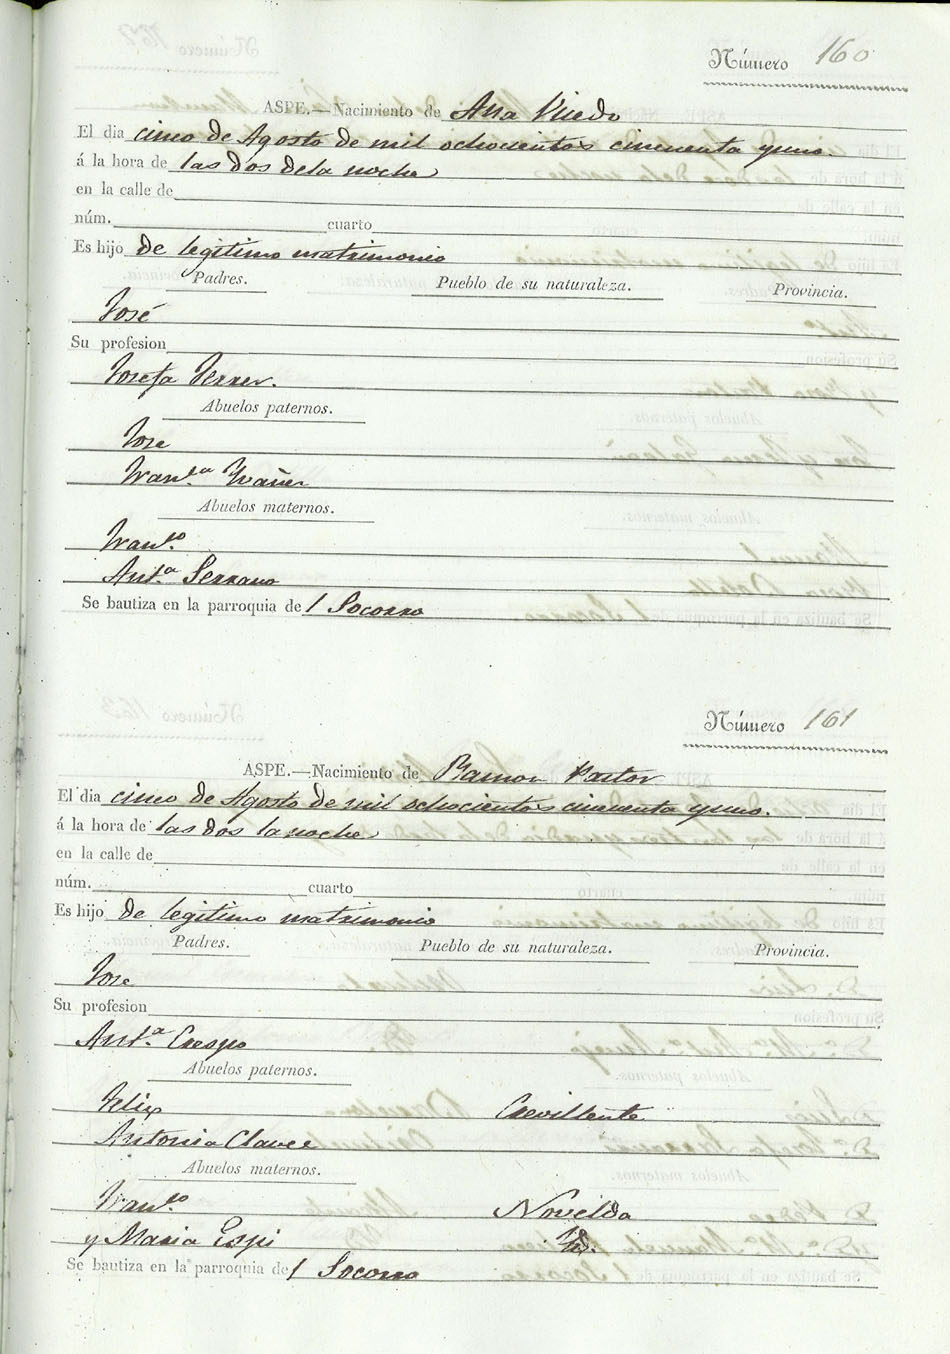 Número 160
ASPE.—Nacimiento de Ana
El dia cinco de Agosto de mil ochocientos cincuenta y uno.
á la hora de las dos de la noche
en la calle de
núm. cuarto
Es hijo de legitimo matrimonio
Padres. Pueblo de su naturaleza. Provincia.
José
Su profesion
Josefa Ferrer.
Abuelos paternos.
Jose
Fran.ca
Abuelos maternos.
Fran.co
Ant.a Serrano
Se bautiza en la parroquia del Socorro
Número 161
ASPE.—Nacimiento de Ramon Pastor
El dia cinco de Agosto de mil ochocientos cincuenta y uno.
á la hora de las dos la noche
en la calle de
núm. cuarto
Es hijo de legitimo matrimonio
Padres. Pueblo de su naturaleza. Provincia.
Jose
Su profesion
Ant.a Crespo
Abuelos paternos.
Felix Crevillente
Antonia Clavee
Abuelos maternos.
Fran.co Novelda
y Maria Espi Id.
Se bautiza en la parroquia del Socorro